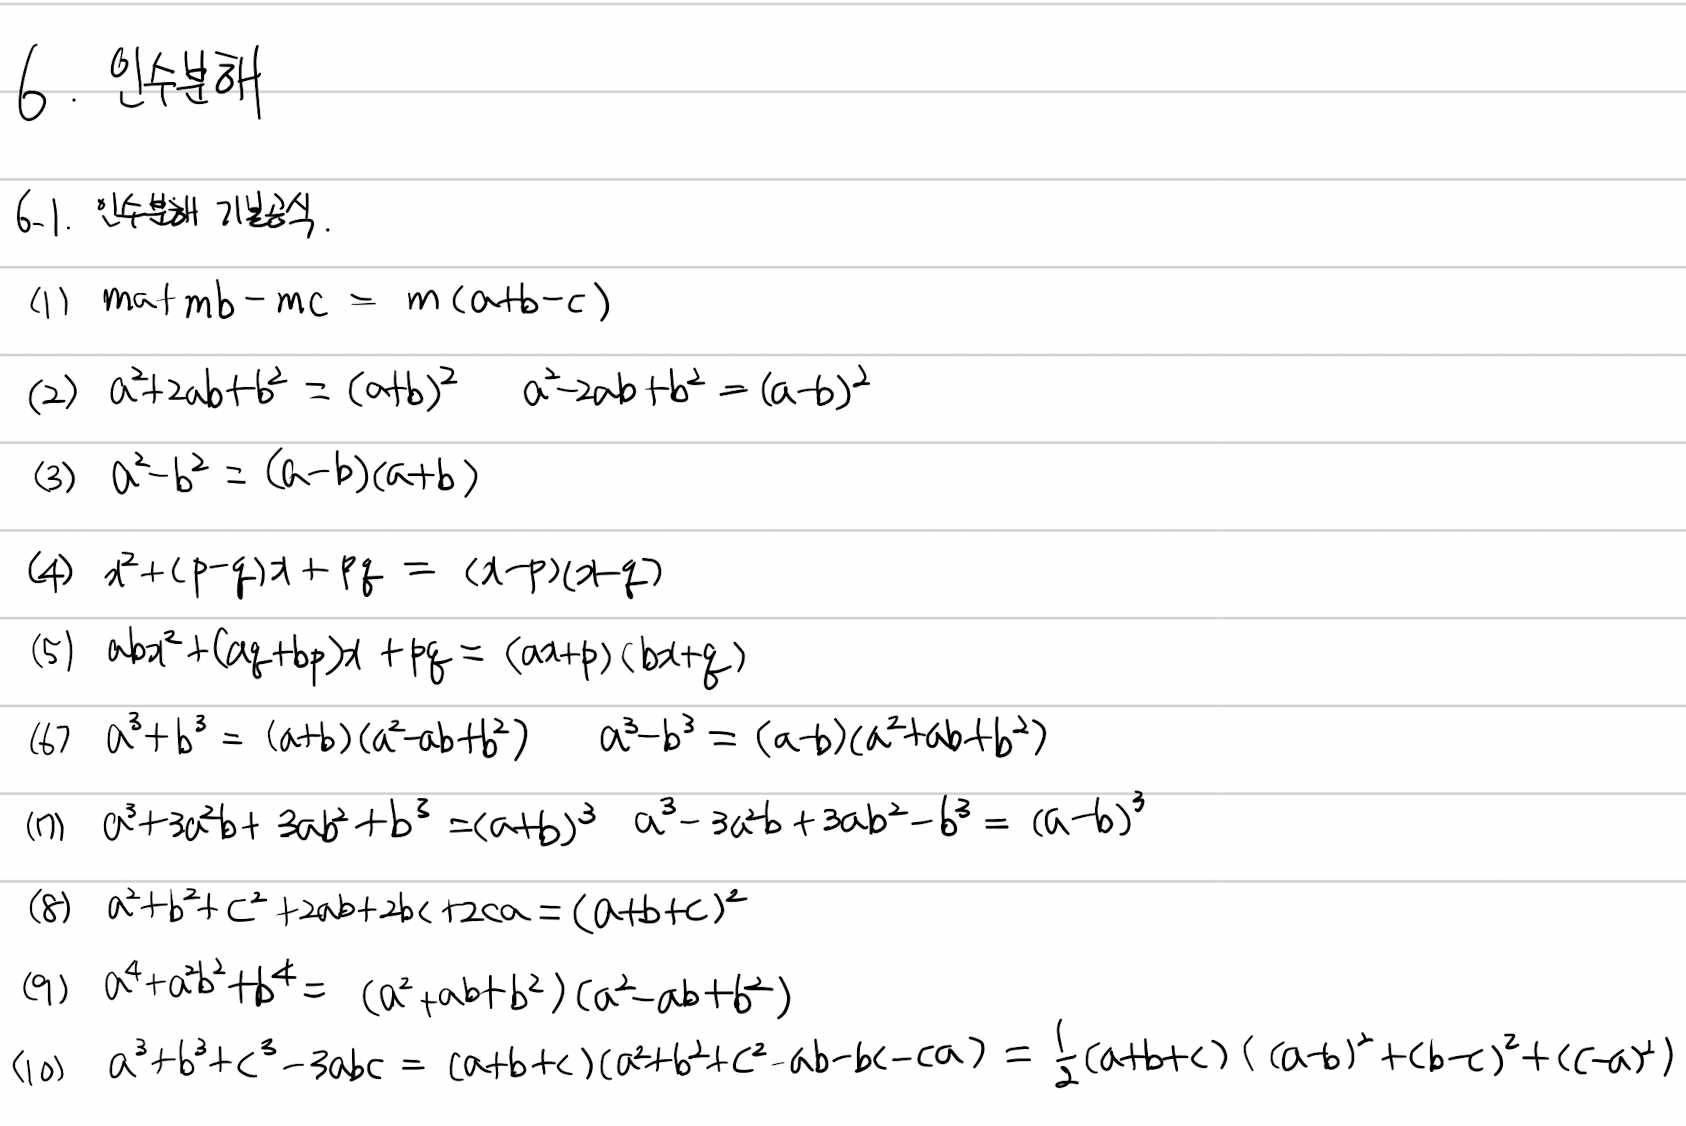 6. 인수분해
6-1. 인수분해 기본공식.
(1) ma+mb-mc = m(a+b-c)
(2) a²+2ab+b² = (a+b)² a²-2ab+b² = (a-b)²
(3) a²-b² = (a-b)(a+b)
(4) x²+(p-q)x+pq = (x-p)(x-q)
(5) abx²+(aq+bp)x+pq = (ax+p)(bx+q)
(6) a³+b³ = (a+b)(a²-ab+b²) a³-b³ = (a-b)(a²+ab+b²)
(7) a³+3a²b+3ab²+b³ = (a+b)³ a³-3a²b+3ab²-b³ = (a-b)³
(8) a²+b²+c²+2ab+2bc+2ca = (a+b+c)²
(9) a⁴+a²b²+b⁴ = (a²+ab+b²)(a²-ab+b²)
(10) a³+b³+c³-3abc = (a+b+c)(a²+b²+c²-ab-bc-ca) = 1/2(a+b+c)((a-b)²+(b-c)²+(c-a)²)